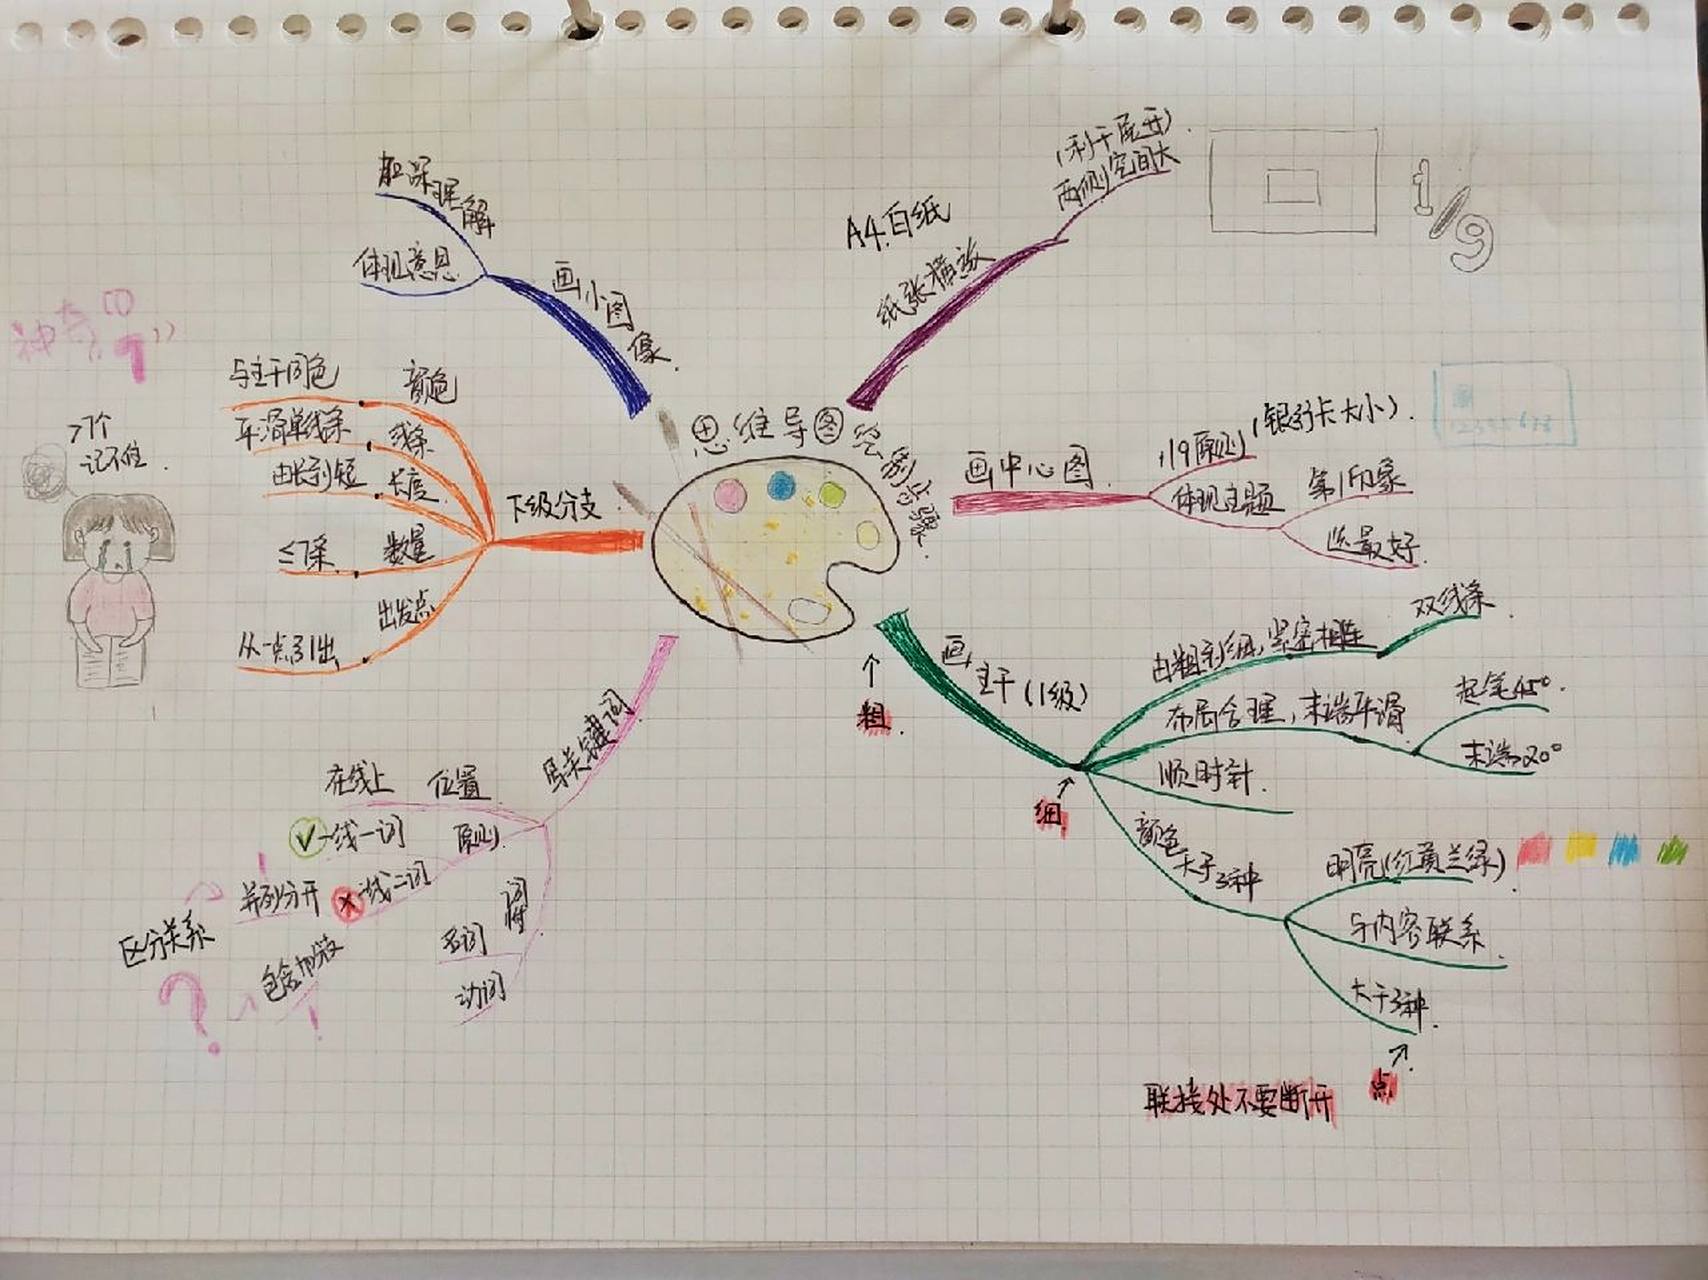 思维导图绘制步骤.
A4.白纸
纸张横放
(利于展开)
两侧空间大
1/9
画中心图.
1/9原则
(银行卡大小).
体现主题
第1印象
画主干(1级)
由粗到细,紧密相连
双线条
布局合理,末端平滑
起笔45°.
末端20°
顺时针.
颜色
大于3种
明亮(红黄兰绿).
与内容联系.
大于3种.
粗.
细.
点.
联接处不要断开
写关键词
位置
在线上
原则.
一线一词
一线二词
并列分开
区分关系
?
词性
动词
下级分支.
颜色
与主干同色
线条
平滑单线条
长度.
由长到短
数量
≤7条.
出发点
从一点引出
神奇“7”
>7个
记不住.
画小图像.
加深理解
体现意思